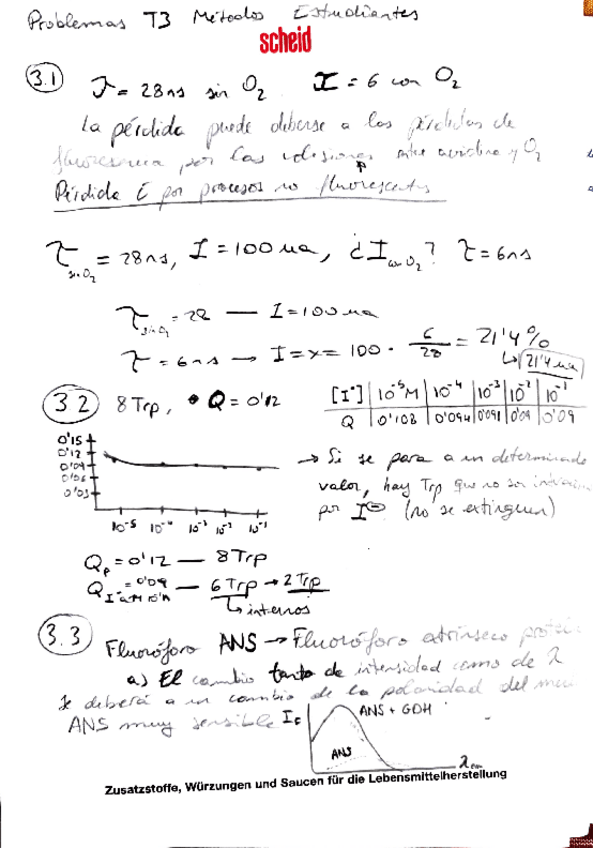 Problemas T3 Métodos Estudiantes
scheid
3.1 τ = 28ns sin O2 τ = 6 con O2
La pérdida puede deberse a las pérdidas de
fluorescencia por las colisiones entre acridina y O2
Pérdida E por procesos no fluorescentes
τ sin O2 = 28ns, I = 100 ua, ¿I con O2? τ = 6ns
τ sin O2 = 28 — I = 100 ua
τ = 6ns → I = x = 100 · 6/28 = 21'4%
↳ 21'4 ua
3.2 8 Trp, • Q = 0'12
[I-] 10-5M 10-4 10-3 10-2 10-1
Q 0'108 0'094 0'091 0'09 0'09
0'15
0'12
0'09
0'06
0'03
10-5 10-4 10-3 10-2 10-1
→ Si se para a un determinado
valor, hay Trp que no son
por I⊖ (no se extinguen)
Qp = 0'12 — 8 Trp
Q I- = 0'09 — 6 Trp → 2 Trp
↳ internos
3.3 Fluoróforo ANS → Fluoróforo extrínseco
a) El cambio tanto de intensidad como de λ
se deberá a un cambio de la polaridad del
ANS muy sensible
IF ANS + GDH
ANS
λem
Zusatzstoffe, Würzungen und Saucen für die Lebensmittelherstellung